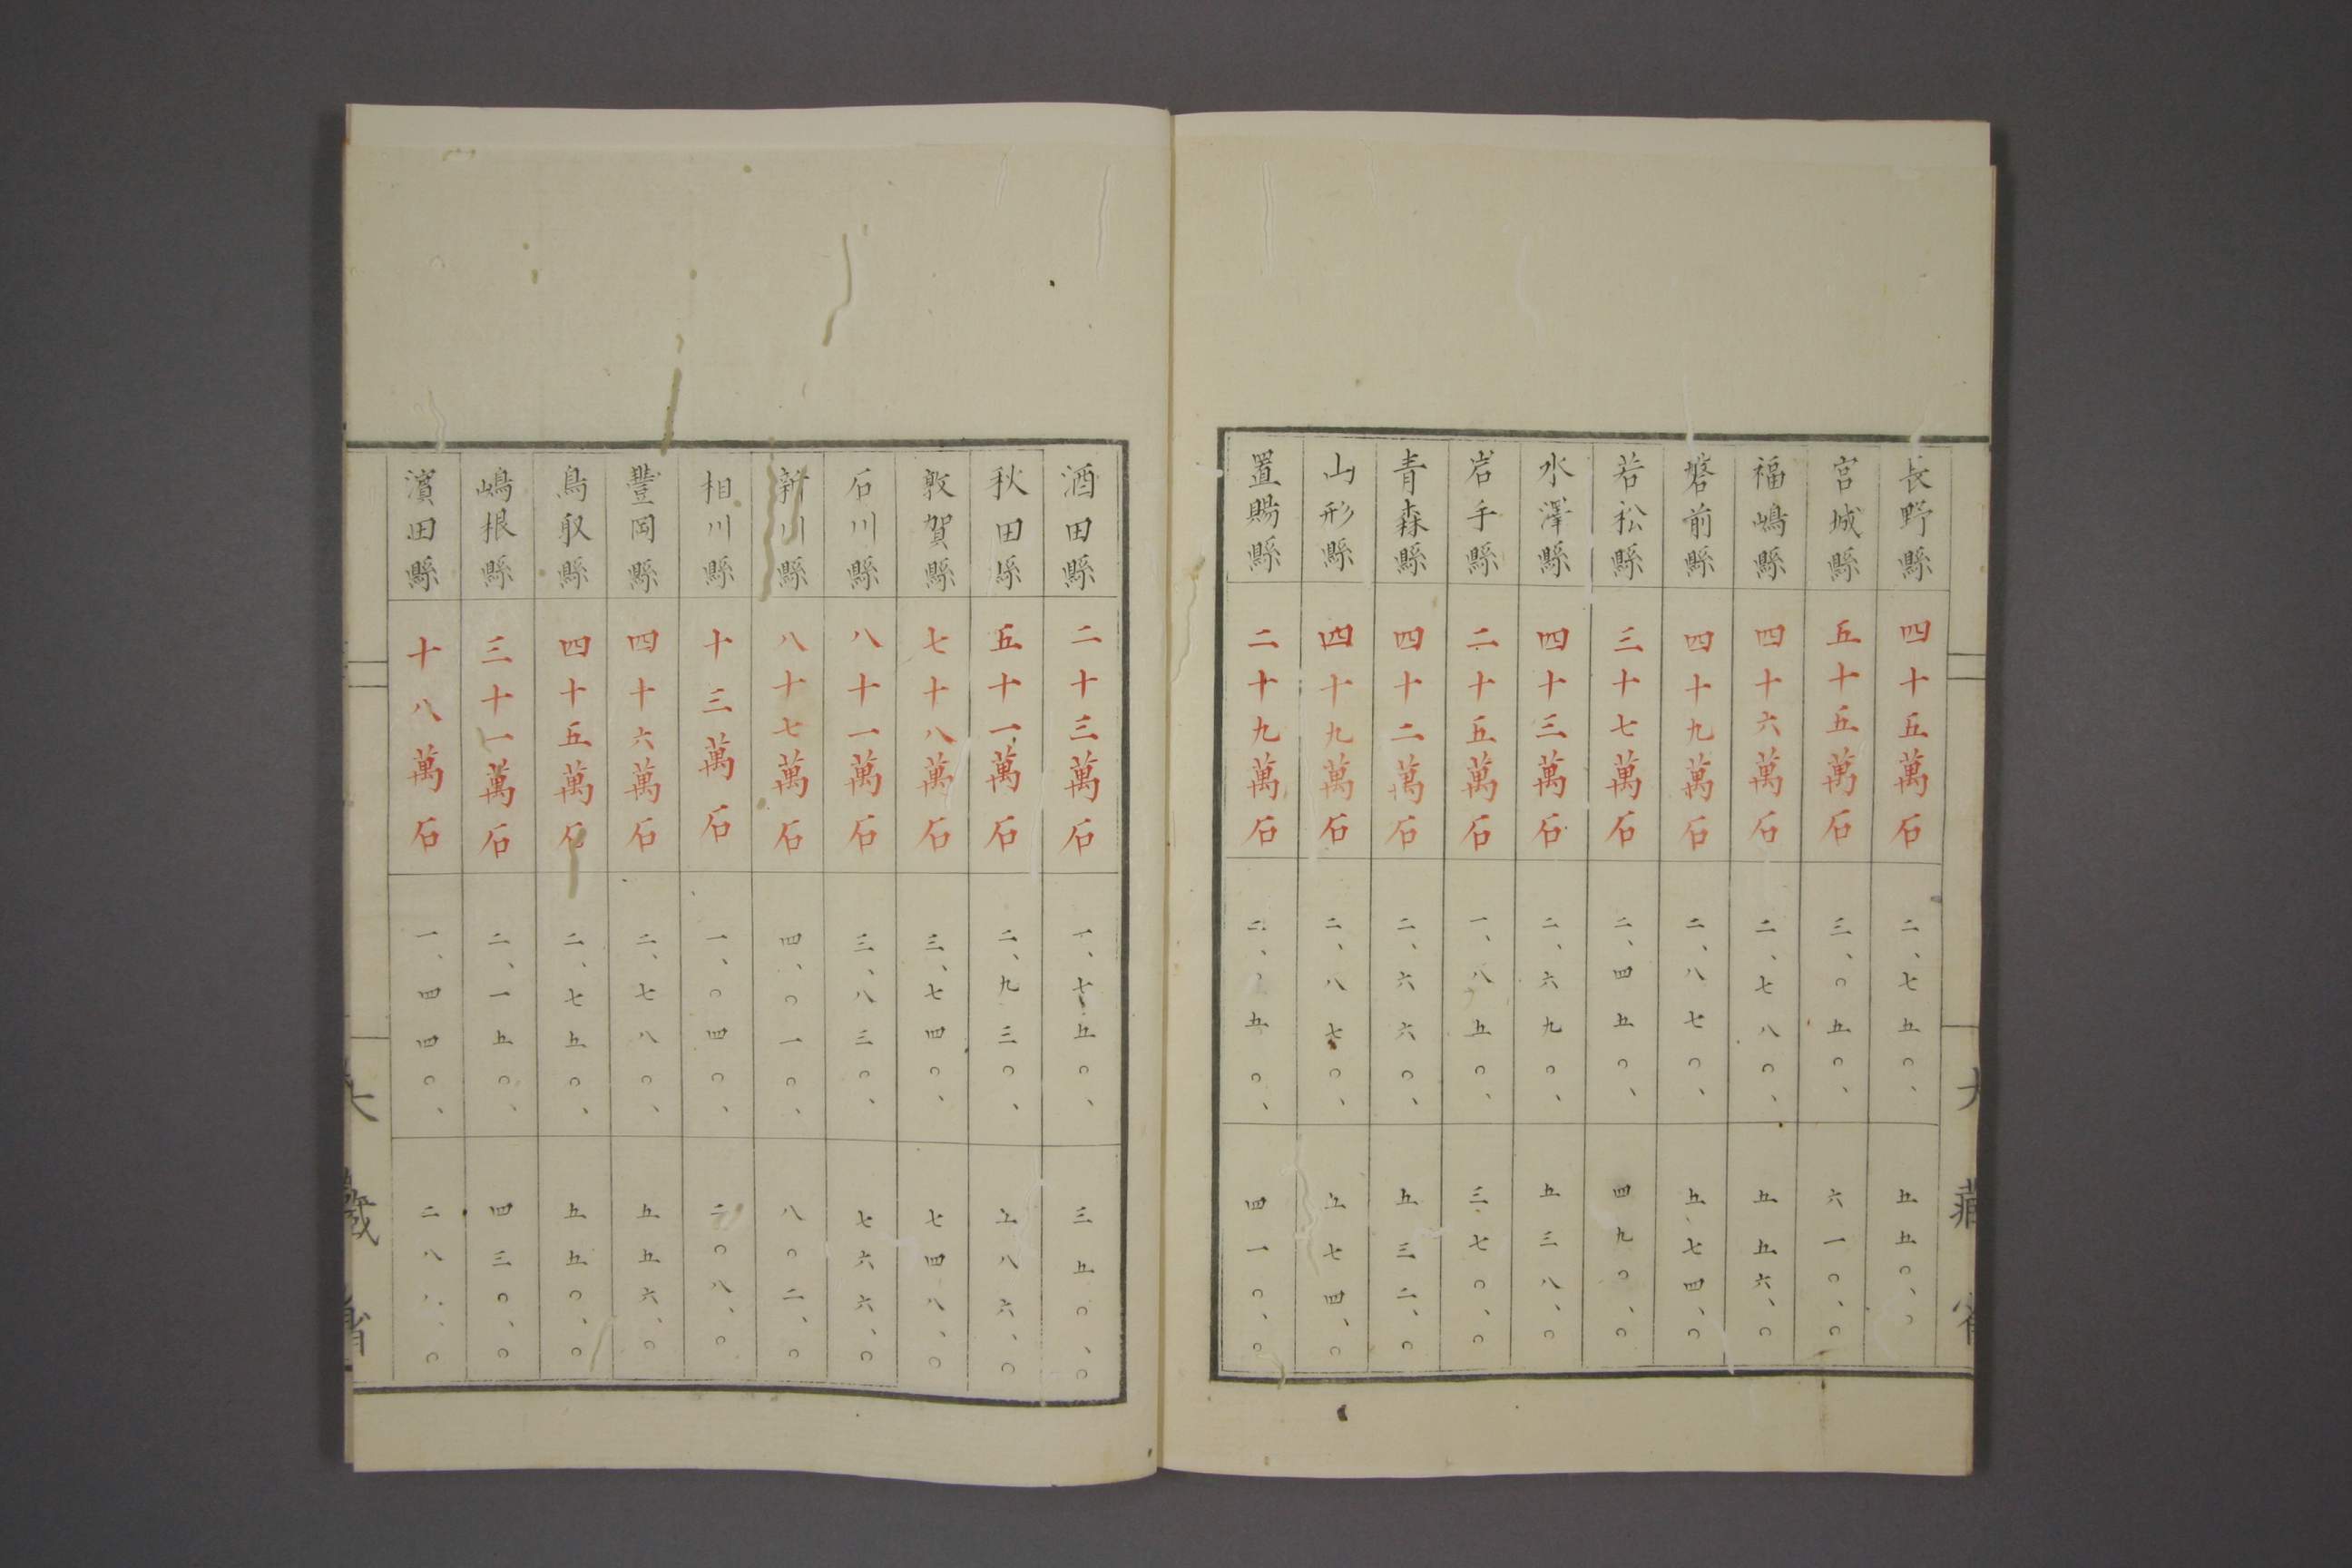 長野縣 四十五萬石 二、七五〇、 五五〇、〇
宮城縣 五十五萬石 三、〇五〇、 六一〇、〇
福嶋縣 四十六萬石 二、七八〇、 五五六、〇
磐前縣 四十九萬石 二、八七〇、 五七四、〇
若松縣 三十七萬石 二、四五〇、 四九〇、〇
水澤縣 四十三萬石 二、六九〇、 五三八、〇
岩手縣 二十五萬石 一、八五〇、 三七〇、〇
青森縣 四十二萬石 二、六六〇、 五三二、〇
山形縣 四十九萬石 二、八七〇、 五七四、〇
置賜縣 二十九萬石 二、五〇、 四一〇、〇
大藏省
酒田縣 二十三萬石 一、七五〇、 三五〇、〇
秋田縣 五十一萬石 二、九三〇、 五八六、〇
敦賀縣 七十八萬石 三、七四〇、 七四八、〇
石川縣 八十一萬石 三、八三〇、 七六六、〇
新川縣 八十七萬石 四、〇一〇、 八〇二、〇
相川縣 十三萬石 一、〇四〇、 二〇八、〇
豐岡縣 四十六萬石 二、七八〇、 五五六、〇
鳥取縣 四十五萬石 二、七五〇、 五五〇、〇
嶋根縣 三十一萬石 二、一五〇、 四三〇、〇
濱田縣 十八萬石 一、四四〇、 二八八、〇
大藏省